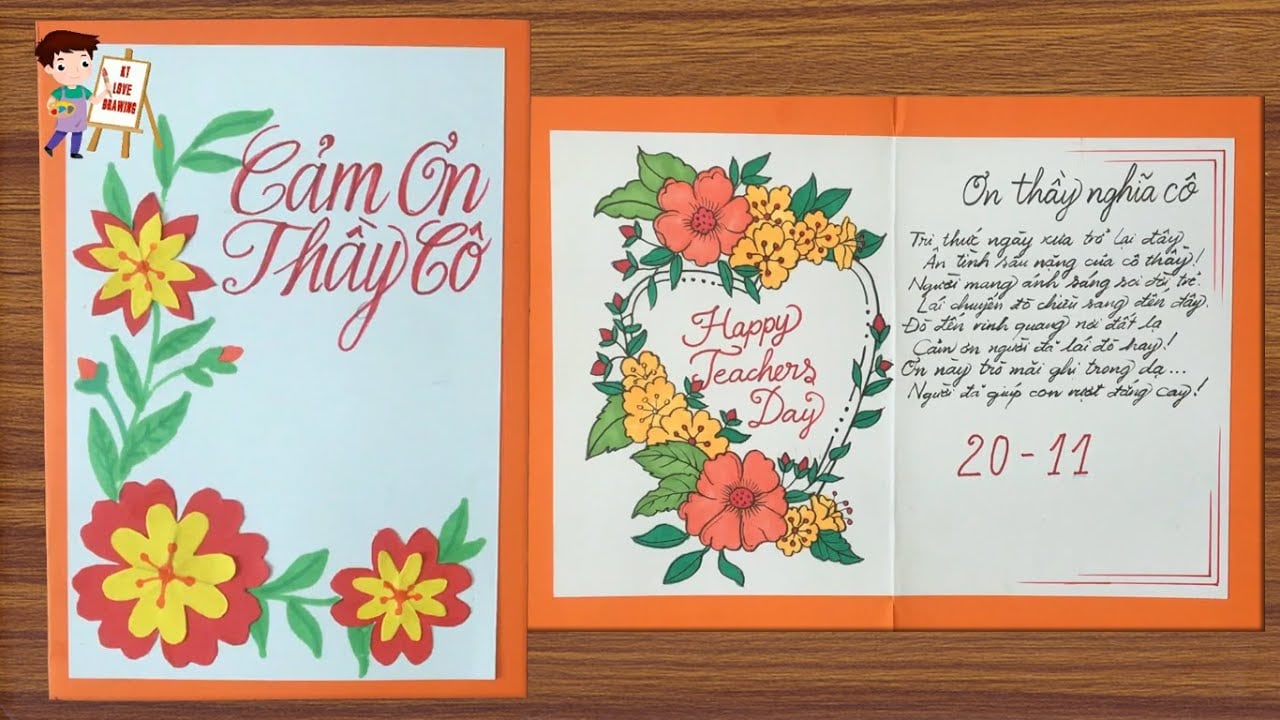 KT
LOVE
DRAWING
Cảm Ơn
Thầy Cô
Happy
Teachers
Day
Ơn thầy nghĩa cô
Tri thức ngày xưa trở lại đây
Ân tình sâu nặng của cô thầy!
Người mang ánh sáng soi đời trẻ
Lái chuyến đò chiều sang đến đây
Đò đến vinh quang nơi đất lạ
Cảm ơn người đã lái đò hay!
Ơn này trò mãi ghi trong dạ...
Người đã giúp con vượt đắng cay!
20 - 11